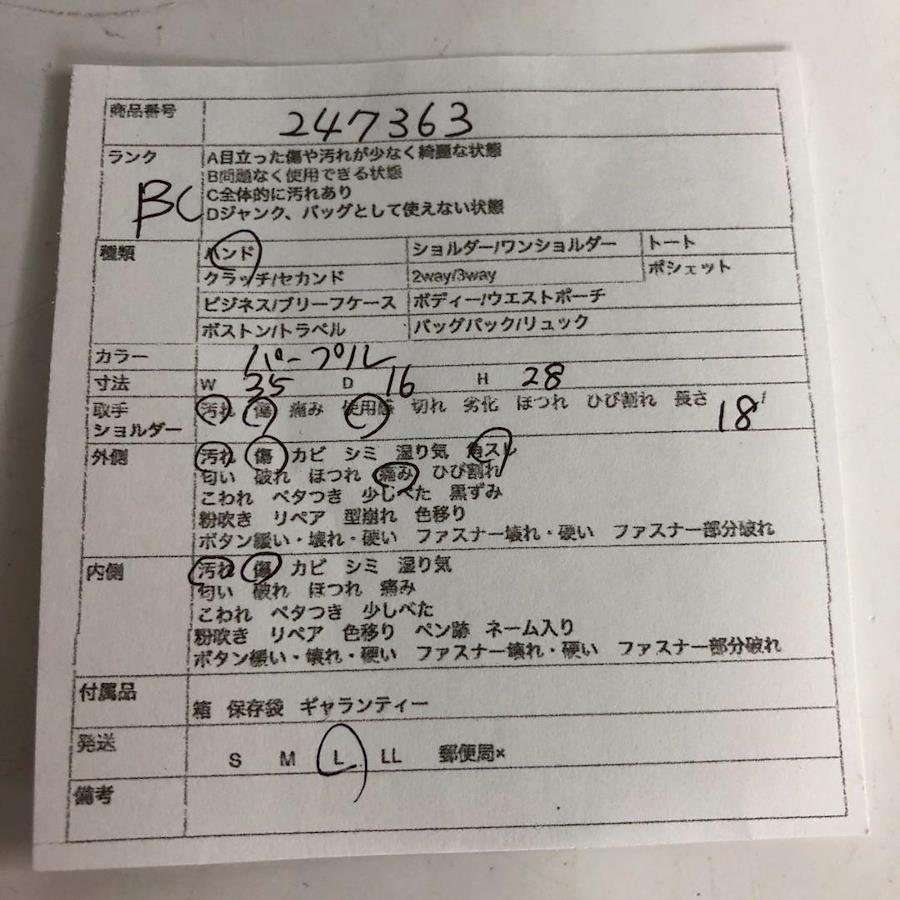 商品番号 247363
ランク BC A目立った傷や汚れが少なく綺麗な状態
B問題なく使用できる状態
C全体的に汚れあり
Dジャンク、バッグとして使えない状態
種類 ハンド ショルダー/ワンショルダー トート
クラッチ/セカンド 2way/3way ポシェット
ビジネス/ブリーフケース ボディー/ウエストポーチ
ボストン/トラベル バッグパック/リュック
カラー パープル
寸法 W 35 D 16 H 28
取手 汚れ 傷 痛み 使用感 切れ 劣化 ほつれ ひび割れ 長さ 18
ショルダー
外側 汚れ 傷 カビ シミ 湿り気 角スレ
匂い 破れ ほつれ 痛み ひび割れ
こわれ ベタつき 少しべた 黒ずみ
粉吹き リペア 型崩れ 色移り
ボタン緩い・壊れ・硬い ファスナー壊れ・硬い ファスナー部分破れ
内側 汚れ 傷 カビ シミ 湿り気
匂い 破れ ほつれ 痛み
こわれ ベタつき 少しべた
粉吹き リペア 色移り ペン跡 ネーム入り
ボタン緩い・壊れ・硬い ファスナー壊れ・硬い ファスナー部分破れ
付属品 箱 保存袋 ギャランティー
発送 S M L LL 郵便局×
備考